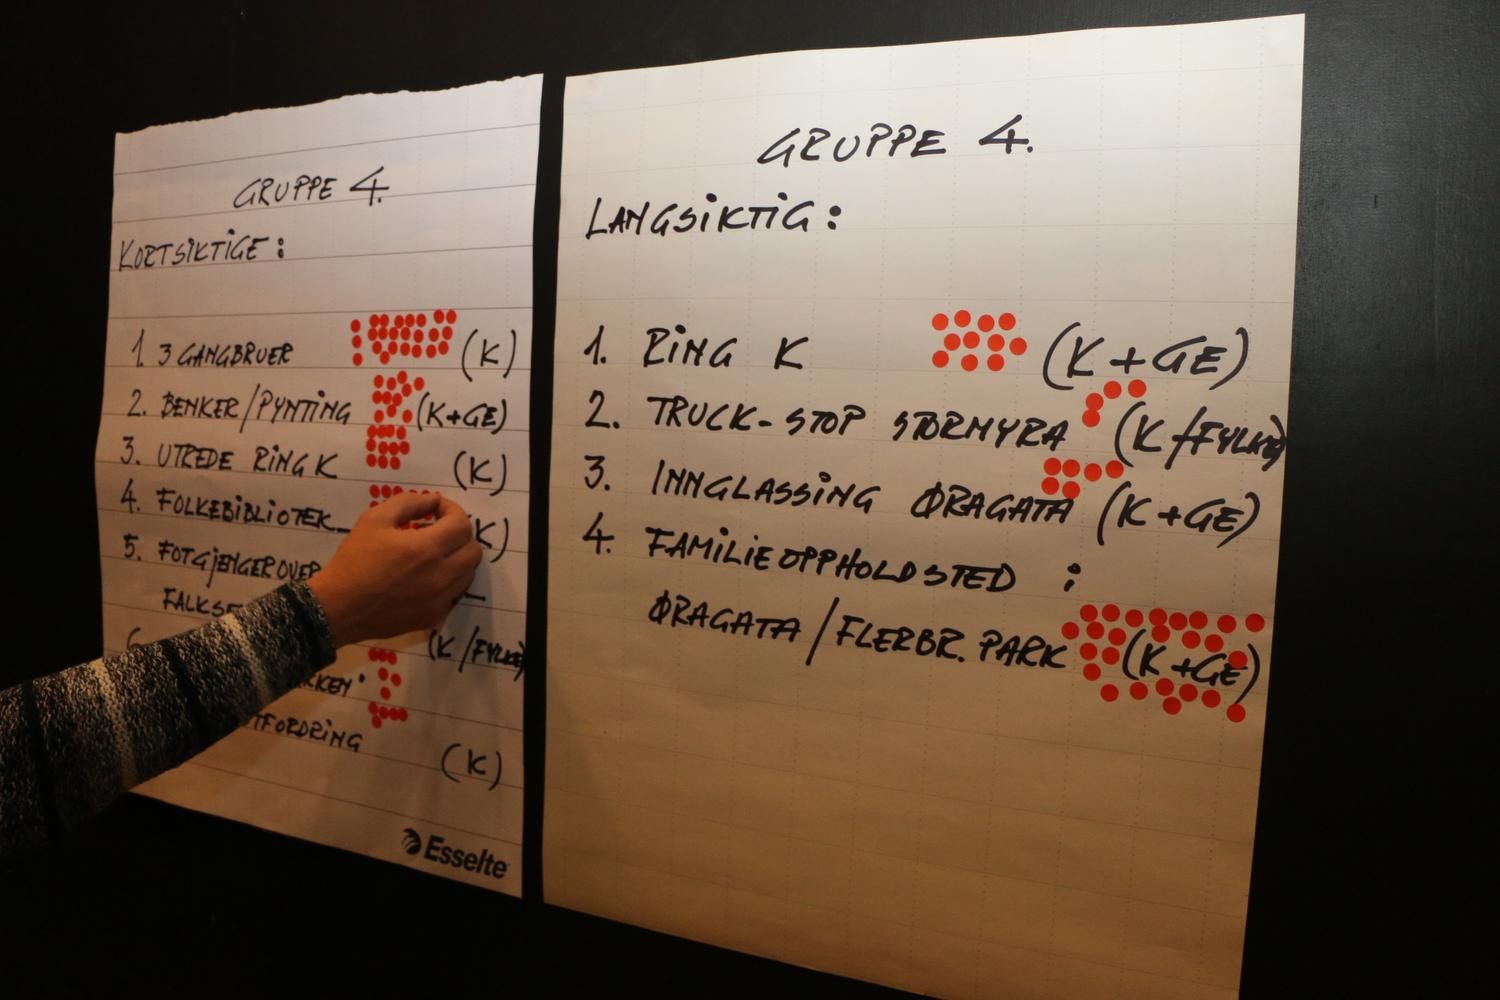 GRUPPE 4.
KORTSIKTIGE:
1. 3 GANGBRUER (K)
2. BENKER/PYNTING (K+GE)
3. UTREDE RING K (K)
4. FOLKEBIBLIOTEK (K)
5. FOTGJENGEROVER
FALKSE
(K/FYLKE)
(K)
Esselte
GRUPPE 4.
LANGSIKTIG:
1. RING K (K+GE)
2. TRUCK-STOP STORMYRA (K/FYLKE)
3. INNGLASSING ØRAGATA (K+GE)
4. FAMILIEOPPHOLDSTED:
ØRAGATA/FLERBR. PARK (K+GE)